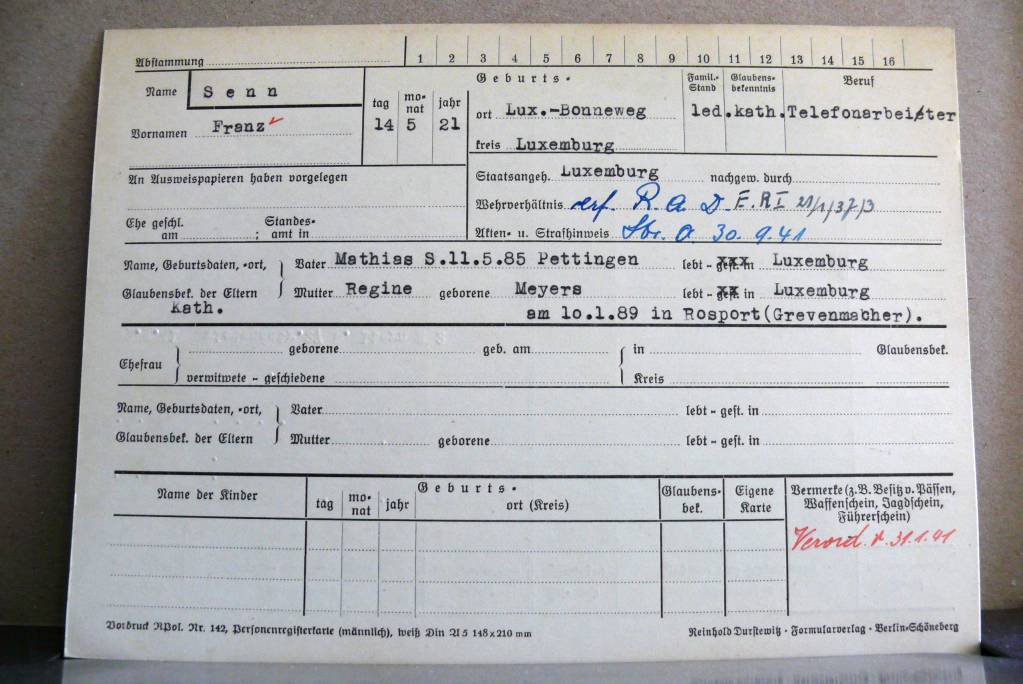 Abstammung 1 2 3 4 5 6 7 8 9 10 11 12 13 14 15 16
Name Senn
Vornamen Franz
Geburts-
tag monat jahr
14 5 21
ort Lux.-Bonneweg
kreis Luxemburg
Famil.-Stand led.
Glaubensbekenntnis kath.
Beruf Telefonarbeiter
An Ausweispapieren haben vorgelegen
Staatsangeh. Luxemburg nachgew. durch
Wehrverhältnis erf. R. A. D. E.R I 21/1/37/3
Ehe geschl. am ; Standesamt in
Akten- u. Strafhinweis Sbr. O 30.9.41
Name, Geburtsdaten, -ort, Vater Mathias S.11.5.85 Pettingen lebt - gest. in Luxemburg
Glaubensbek. der Eltern Mutter Regine geborene Meyers lebt - gest. in Luxemburg
Kath. am 10.1.89 in Rosport(Grevenmacher).
Ehefrau geborene geb. am in Glaubensbek.
verwitwete - geschiedene Kreis
Name, Geburtsdaten, -ort, Vater lebt - gest. in
Glaubensbek. der Eltern Mutter geborene lebt - gest. in
Name der Kinder
Geburts-
tag monat jahr ort (Kreis)
Glaubensbek.
Eigene Karte
Vermerke (z.B. Besitz v. Pässen,
Waffenschein, Jagdschein,
Führerschein)
Verord. v. 31.1.41
Vordruck RPol. Nr. 142, Personenregisterkarte (männlich), weiß Din A 5 148x210 mm
Reinhold Durstewitz · Formularverlag · Berlin-Schöneberg